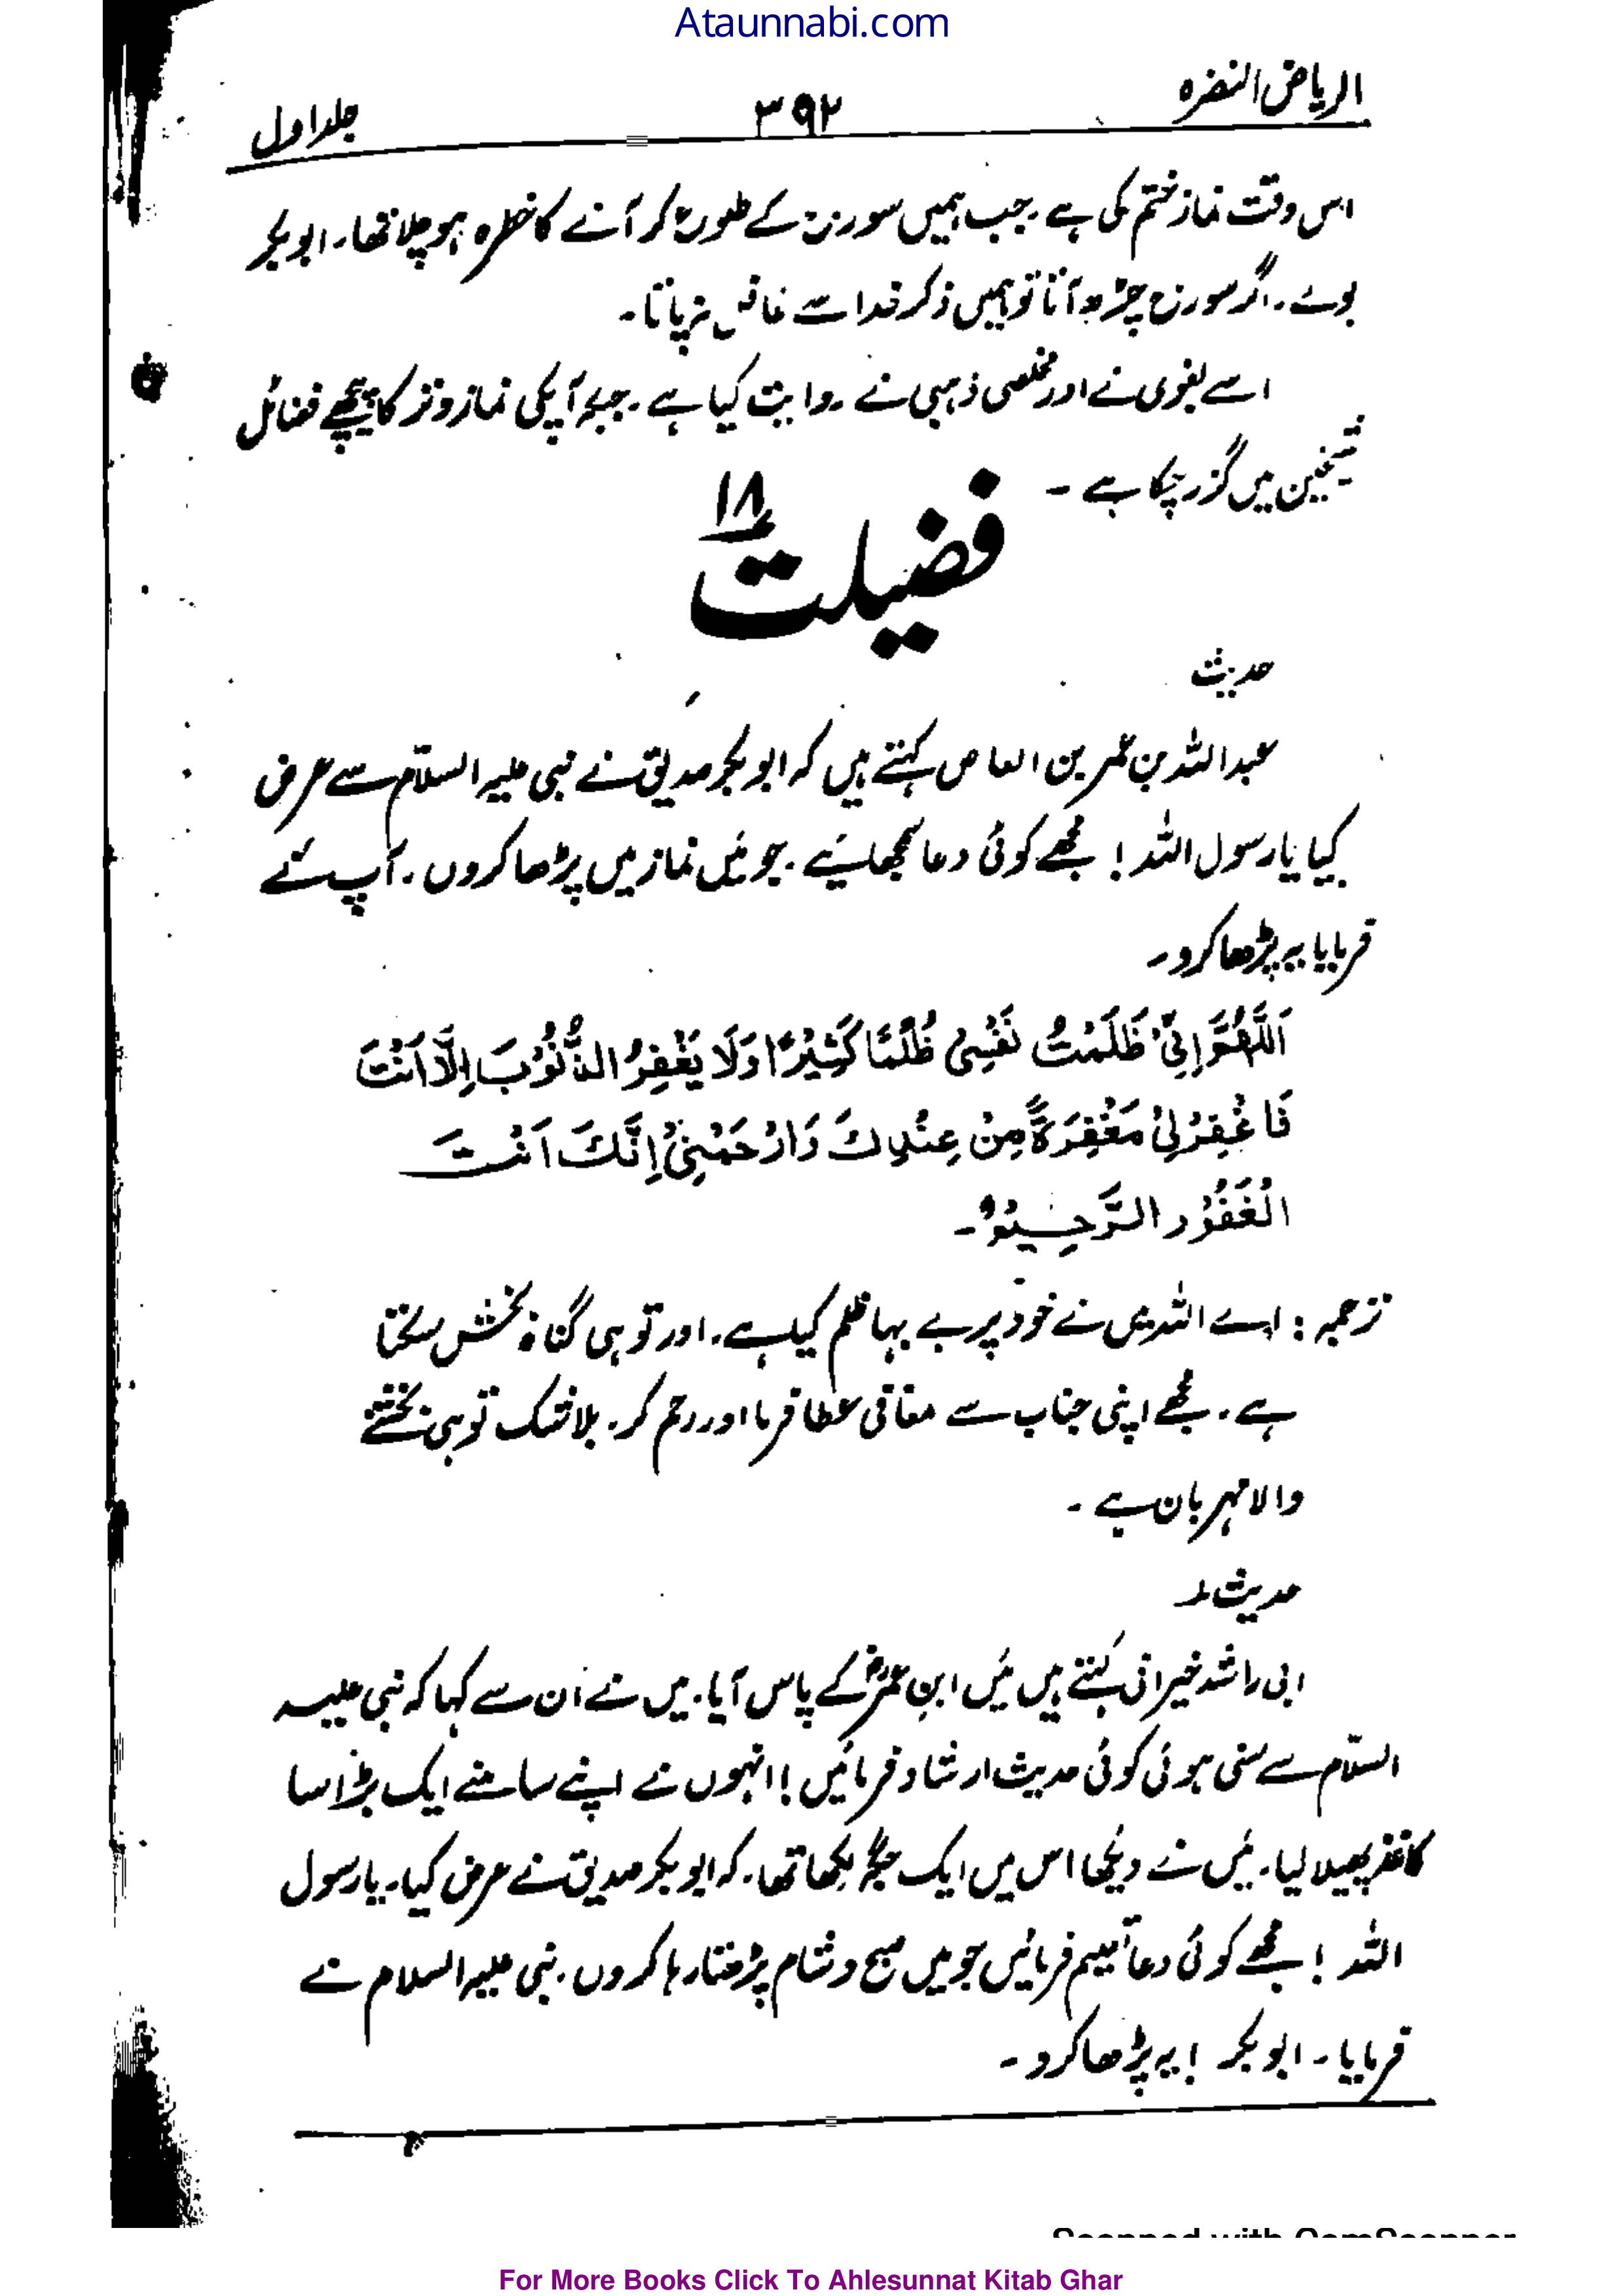 Ataunnabi.com
الریاض النضرہ ۳۹۲ جلد اول
اس وقت نماز ختم کی ہے جب ہمیں سورج کے طلوع کر آنے کا خطرہ ہو چلا تھا۔ ابوبکر
بولے۔ اگر سورج چڑھ آتا تو ہمیں ذکر خدا سے غافل نہ پاتا۔
اسے بغوی نے اور مخلص ذہبی نے روایت کیا ہے۔ جبکہ آپکی نماز وتر کا پیچھے فضائل
شیخین میں گزر چکا ہے ۔
فضیلت ۱۸
حدیث
عبداللہ بن عمر بن العاص کہتے ہیں کہ ابوبکر صدیق نے نبی علیہ السلام سے عرض
کیا یا رسول اللہ! مجھے کوئی دعا سکھلائیے۔ جو میں نماز میں پڑھا کروں۔ آپ نے
فرمایا یہ پڑھا کرو۔
اَللّٰهُمَّ اِنِّيْ ظَلَمْتُ نَفْسِيْ ظُلْمًا كَثِيْرًا وَلَا يَغْفِرُ الذُّنُوْبَ اِلَّا اَنْتَ
فَاغْفِرْلِيْ مَغْفِرَةً مِنْ عِنْدِكَ وَارْحَمْنِيْ اِنَّكَ اَنْتَ
الْغَفُوْر الرَّحِيْمُ۔
ترجمہ: اے اللہ میں نے خود پر بے بہا ظلم کیا ہے۔ اور تو ہی گناہ بخش سکتا
ہے۔ مجھے اپنی جناب سے معافی عطا فرما اور رحم کر۔ بلاشک تو ہی بخشنے
والا مہربان ہے ۔
حدیث
ابی راشد خیرانی کہتے ہیں میں ابن عمرؓ کے پاس آیا۔ میں نے ان سے کہا کہ نبی علیہ
السلام سے سنی ہوئی کوئی حدیث ارشاد فرمائیں! انہوں نے اپنے سامنے ایک بڑا سا
کاغذ پھیلا لیا۔ میں نے دیکھا اس میں ایک جگہ لکھا تھا۔ کہ ابوبکر صدیق نے عرض کیا۔ یا رسول
اللہ! مجھے کوئی دعا تعلیم فرمائیں جو میں صبح و شام پڑھتا رہا کروں۔ نبی علیہ السلام نے
فرمایا۔ ابوبکر! یہ پڑھا کرو ۔
Scanned with CamScanner
For More Books Click To Ahlesunnat Kitab Ghar